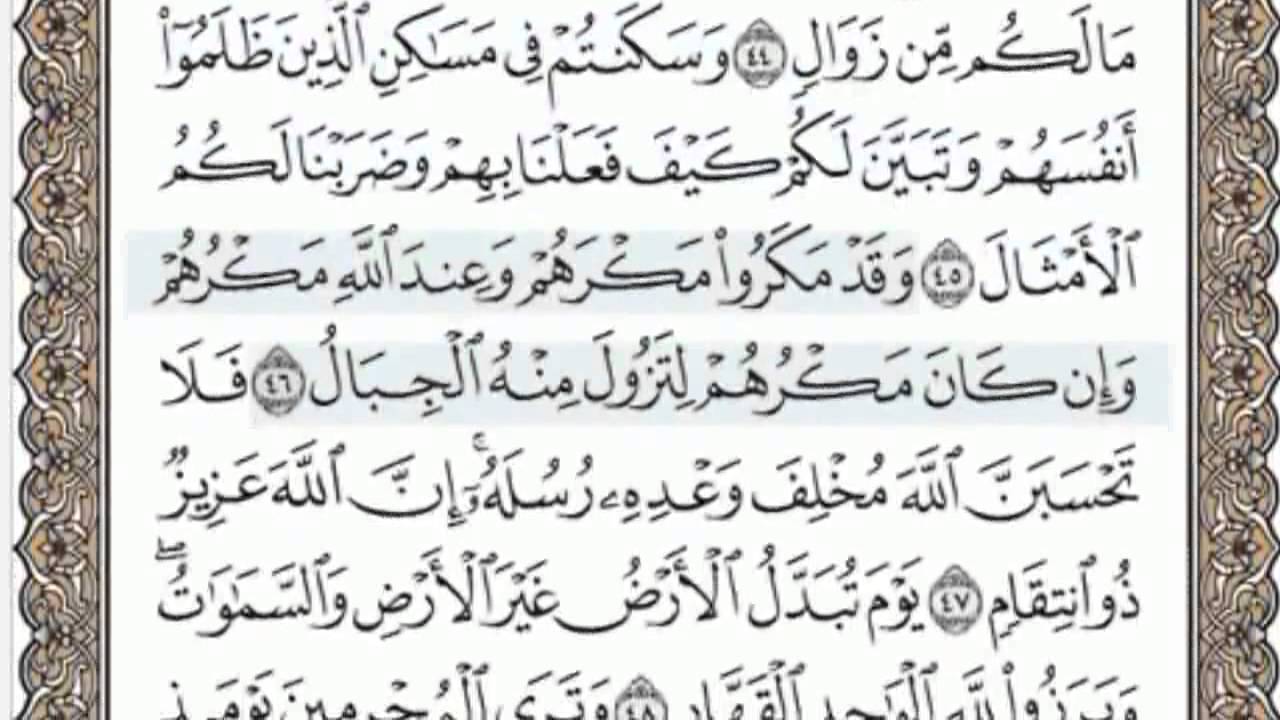 مَا لَكُم مِّن زَوَالٍ ٤٤ وَسَكَنتُمْ فِى مَسَـٰكِنِ ٱلَّذِينَ ظَلَمُوٓا۟
أَنفُسَهُمْ وَتَبَيَّنَ لَكُمْ كَيْفَ فَعَلْنَا بِهِمْ وَضَرَبْنَا لَكُمُ
ٱلْأَمْثَالَ ٤٥ وَقَدْ مَكَرُوا۟ مَكْرَهُمْ وَعِندَ ٱللَّهِ مَكْرُهُمْ
وَإِن كَانَ مَكْرُهُمْ لِتَزُولَ مِنْهُ ٱلْجِبَالُ ٤٦ فَلَا
تَحْسَبَنَّ ٱللَّهَ مُخْلِفَ وَعْدِهِۦ رُسُلَهُۥٓ ۗ إِنَّ ٱللَّهَ عَزِيزٌ
ذُو ٱنتِقَامٍ ٤٧ يَوْمَ تُبَدَّلُ ٱلْأَرْضُ غَيْرَ ٱلْأَرْضِ وَٱلسَّمَـٰوَٰتُ ۖ
وَبَرَزُوا۟ لِلَّهِ ٱلْوَٰحِدِ ٱلْقَهَّارِ ٤٨ وَتَرَى ٱلْمُجْرِمِينَ يَوْمَئِذٍ